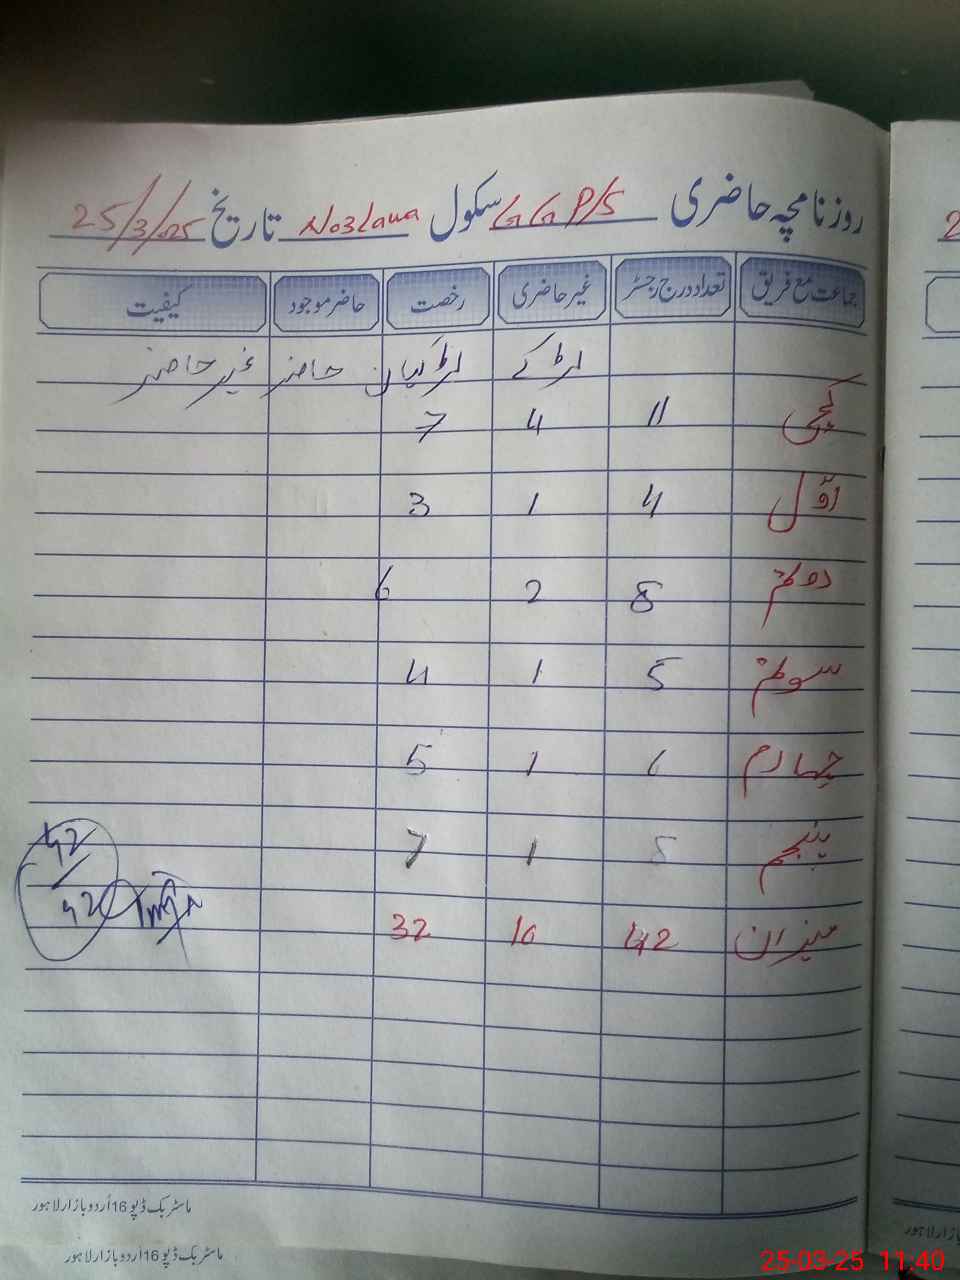 روزنامچہ حاضری GGP/S سکول Nozlana تاریخ 25/3/25
جماعت مع فریق تعداد درج رجسٹر غیر حاضری رخصت حاضر موجود کیفیت
لڑکے لڑکیاں حاضر غیر حاضر
کچی 11 4 7
اوّل 4 1 3
دوئم 8 2 6
سوئم 5 1 4
چہارم 6 1 5
پنجم 8 1 7
میزان 42 10 32
42
42
ماسٹر بک ڈپو 16 اُردو بازار لاہور
ماسٹر بک ڈپو 16 اُردو بازار لاہور
25-03-25 11:40